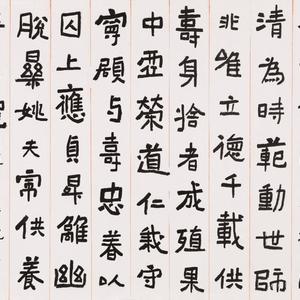 清為時範動世師
唯立德千載供
壽身捨者成殖果
中榮道仁守
寧与壽忠養以
囚上應貞昇離幽
脫姚夫常供養